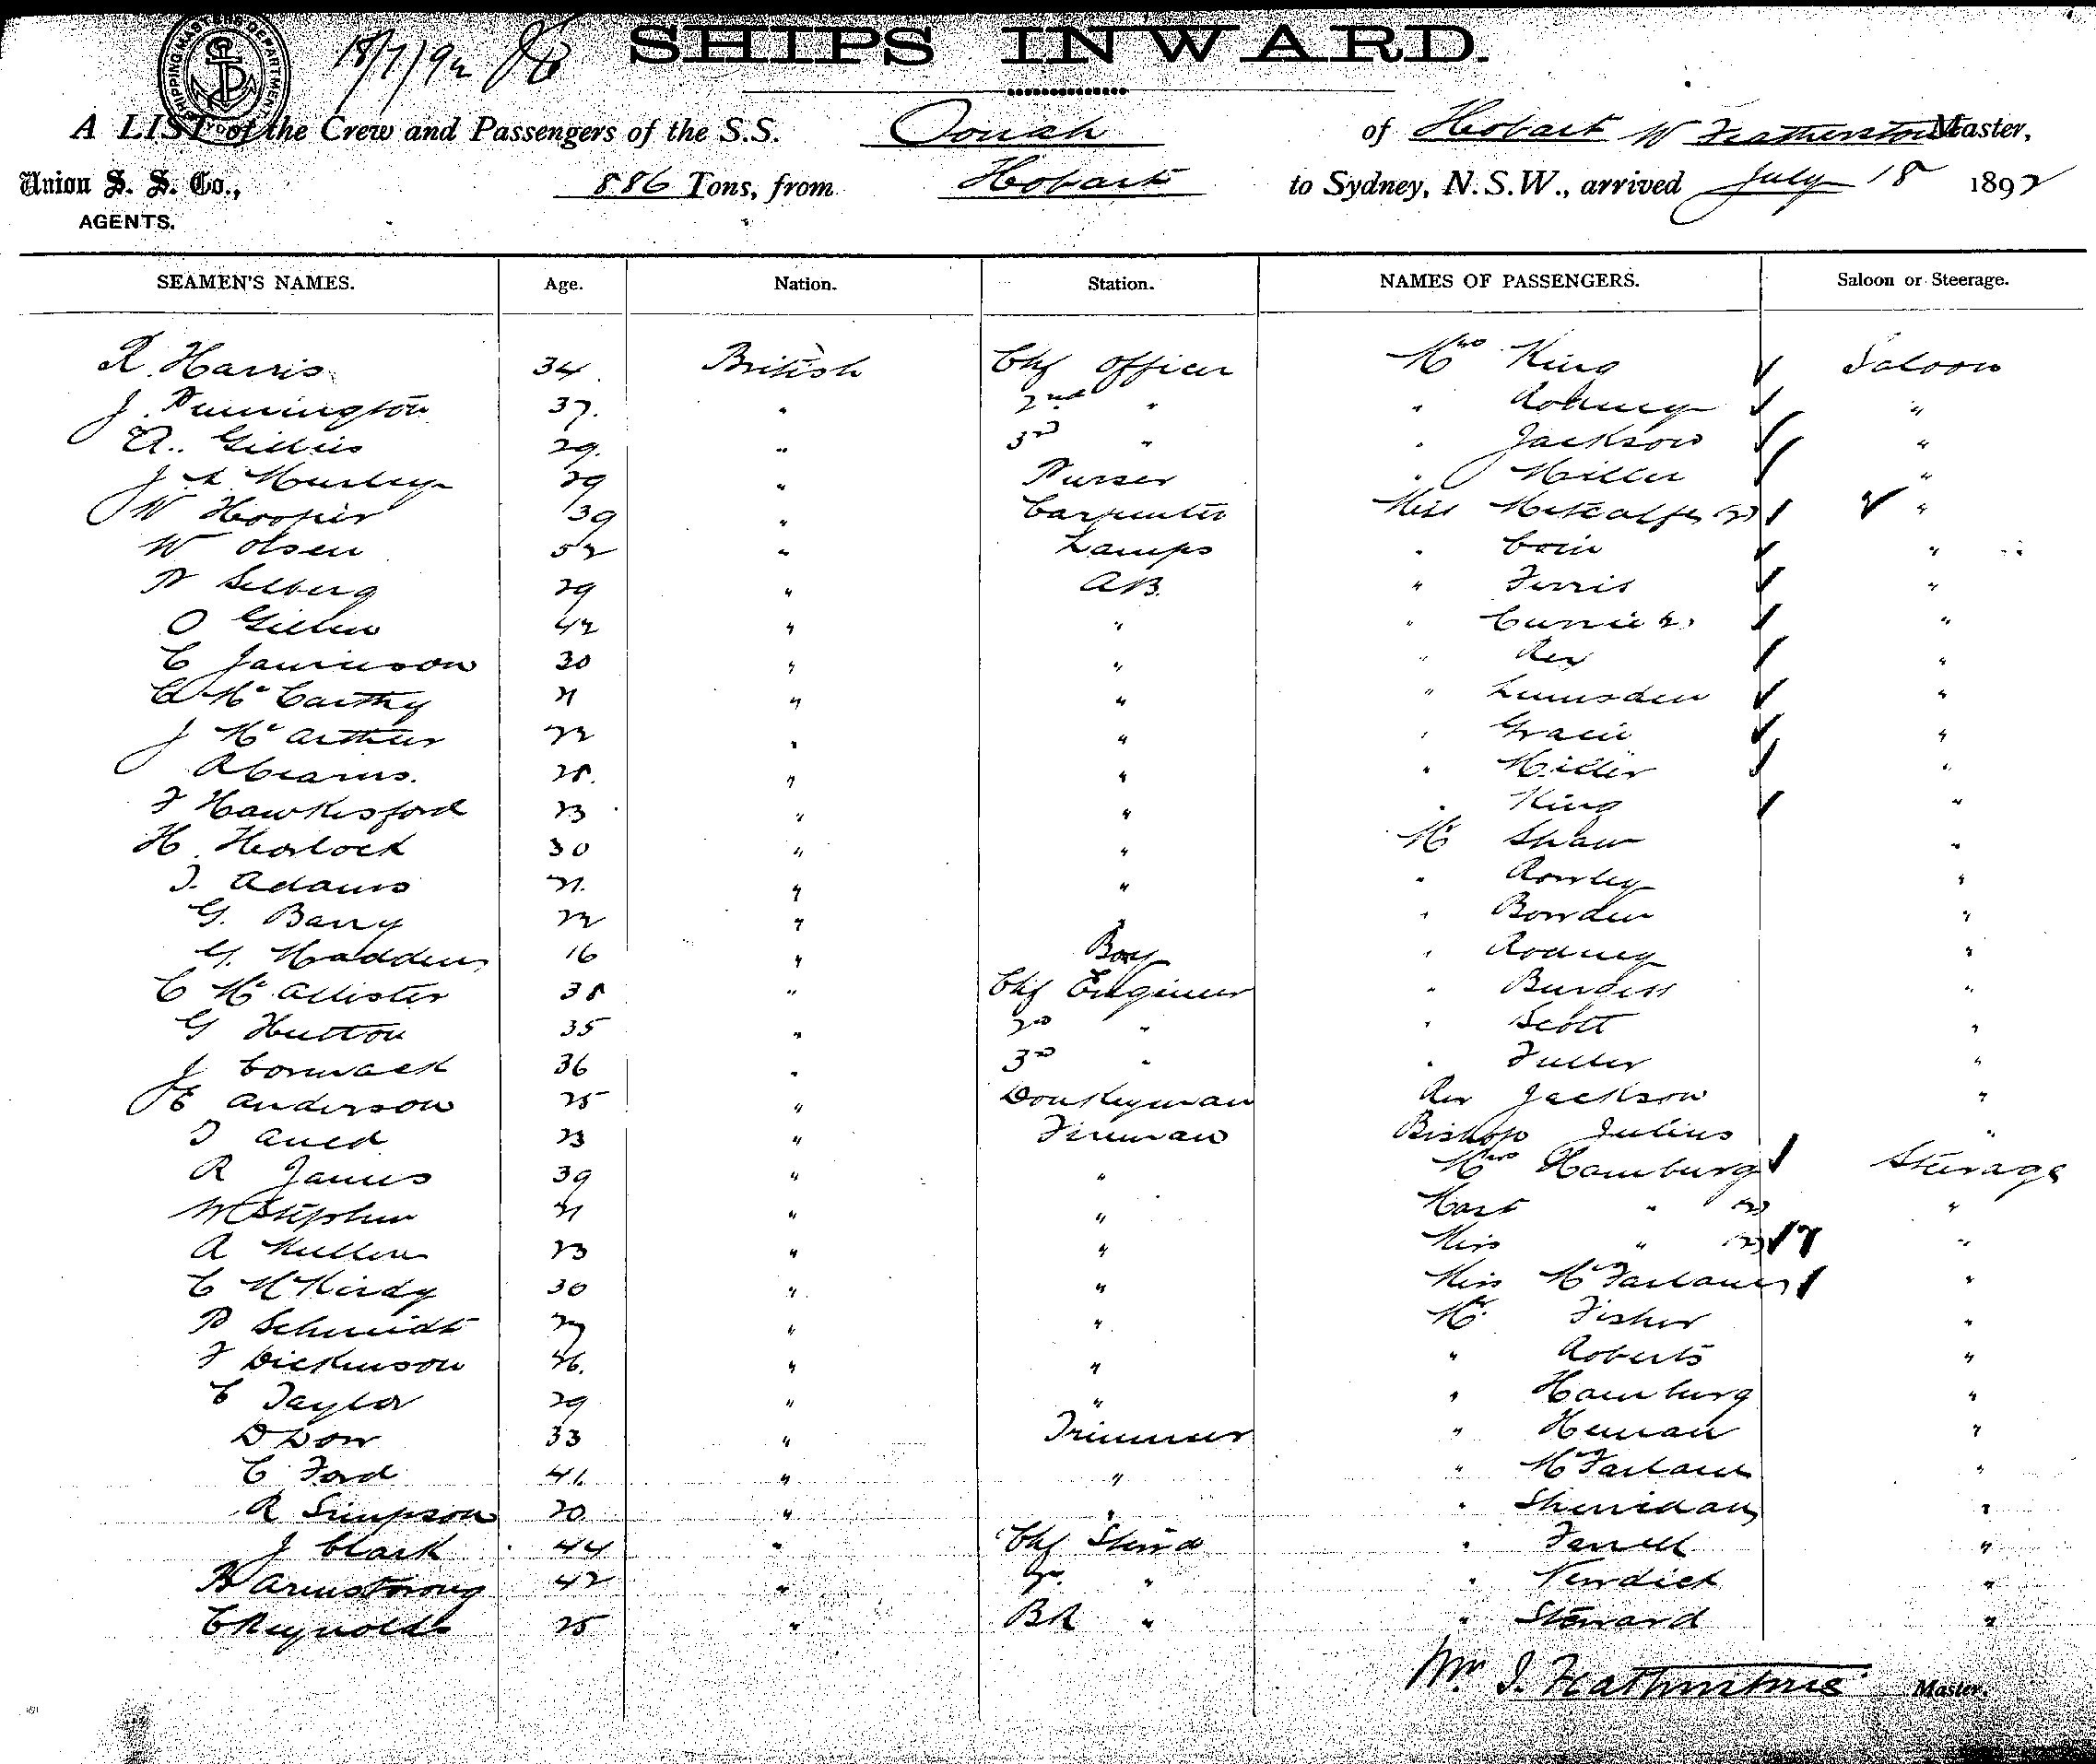 SHIPPING MASTER'S DEPARTMENT
18/7/92
SHIPS INWARD.
A LIST of the Crew and Passengers of the S.S. Oonah of Hobart W Featherstone Master,
Union S. S. Co., 886 Tons, from Hobart to Sydney, N.S.W., arrived July 18 1892
AGENTS.
SEAMEN'S NAMES. Age. Nation. Station. NAMES OF PASSENGERS. Saloon or Steerage.
R. Harris 34 British Chf Officer Mrs King Saloon
J. Pennington 37. " 2nd " " Rodney "
A. Gillies 29. " 3rd " " Jackson "
J A Murley 29 " Purser " Miller "
W Hooper 39 " Carpenter Miss Metcalfe (2) "
W Olsen 52 " Lamps " Coin "
P Selberg 29 " A.B. " Ferris "
O Gillen 42 " " " Currie 2. "
C Jamieson 30 " " " Rex "
C McCarthy 21 " " " Lumsden "
J McArthur 22 " " " Gracie "
Abearns. 28. " " " Miller "
F Hawkesford 23 " " " King "
H. Horlock 30 " " Mr Shaw "
J. Adams 21. " " " Rowley "
G. Barry 22 " " " Bowden "
G. Madden 16 " Boy " Rodney "
C McAllister 38 " Chf Engineer " Burgess "
G Hutton 35 " 2nd " " Scott "
J Cormack 36 " 3rd " " Fuller "
E Anderson 25 " Donkeyman Rev Jackson "
T Aued 23 " Fireman Bishop Julius "
R James 39 " " Mrs Hamburg Steerage
W Stephen 21 " " Mast " (2) "
A Mullen 23 " " Miss " (2) "
C McKirdy 30 " " Miss McFarlane "
P Schmidt 27 " " Mr. Fisher "
F Dickenson 26. " " " Roberts "
C Taylor 29 " " " Hamburg "
D Dow 33 " Trimmer " Heman "
C Ford 41. " " " McFarlane "
R Simpson 20 " " " Sherridan "
J Clark 44 " Chf Stew'd " Farrell "
R Armstrong 42 " 2nd " " Verdict "
C Reynolds 25 " BR " " Steward "
Wm. J. Featherstone Master.